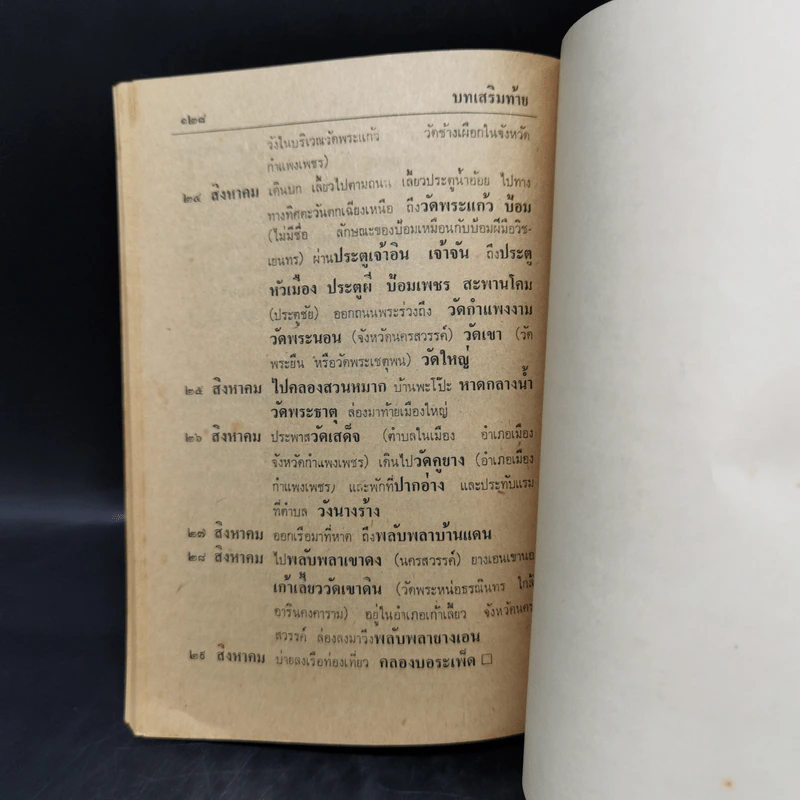 ๑๒๘ บทเสริมท้าย
วังในบริเวณวัดพระแก้ว วัดช้างเผือกในจังหวัด
กำแพงเพชร)
๒๔ สิงหาคม เดินบก เลี้ยวไปตามถนน เลี้ยวประตูน้ำอ้อย ไปทาง
ทางทิศตะวันตกเฉียงเหนือ ถึงวัดพระแก้ว ป้อม
(ไม่มีชื่อ ลักษณะของป้อมเหมือนกับป้อมฝีมือวิช-
เยนทร) ผ่านประตูเจ้าอิน เจ้าจัน ถึงประตู
หัวเมือง ประตูผี ป้อมเพชร สะพานโคม
(ประตูชัย) ออกถนนพระร่วงถึง วัดกำแพงงาม
วัดพระนอน (จังหวัดนครสวรรค์) วัดเขา (วัด
พระยืน หรือวัดพระเชตุพน) วัดใหญ่
๒๕ สิงหาคม ไปคลองสวนหมาก บ้านพะโป๊ะ หาดกลางน้ำ
วัดพระธาตุ ล่องมาท้ายเมืองใหญ่
๒๖ สิงหาคม ประพาสวัดเสด็จ (ตำบลในเมือง อำเภอเมือง
จังหวัดกำแพงเพชร) เดินไปวัดคูยาง (อำเภอเมือง
กำแพงเพชร) และพักที่ปากอ่าง และประทับแรม
ที่ตำบล วังนางร้าง
๒๗ สิงหาคม ออกเรือมาที่หาด ถึงพลับพลาบ้านแดน
๒๘ สิงหาคม ไปพลับพลาเขาดง (นครสวรรค์) ยางเอนเขานอ
เก้าเลี้ยววัดเขาดิน (วัดพระหน่อธรณินทร ใกล้
อารินคงคาราม) อยู่ในอำเภอเก้าเลี้ยว จังหวัดนคร
สวรรค์ ล่องลงมาวังพลับพลายางเอน
๒๙ สิงหาคม บ่ายลงเรือท่องเที่ยว คลองบอระเพ็ด □